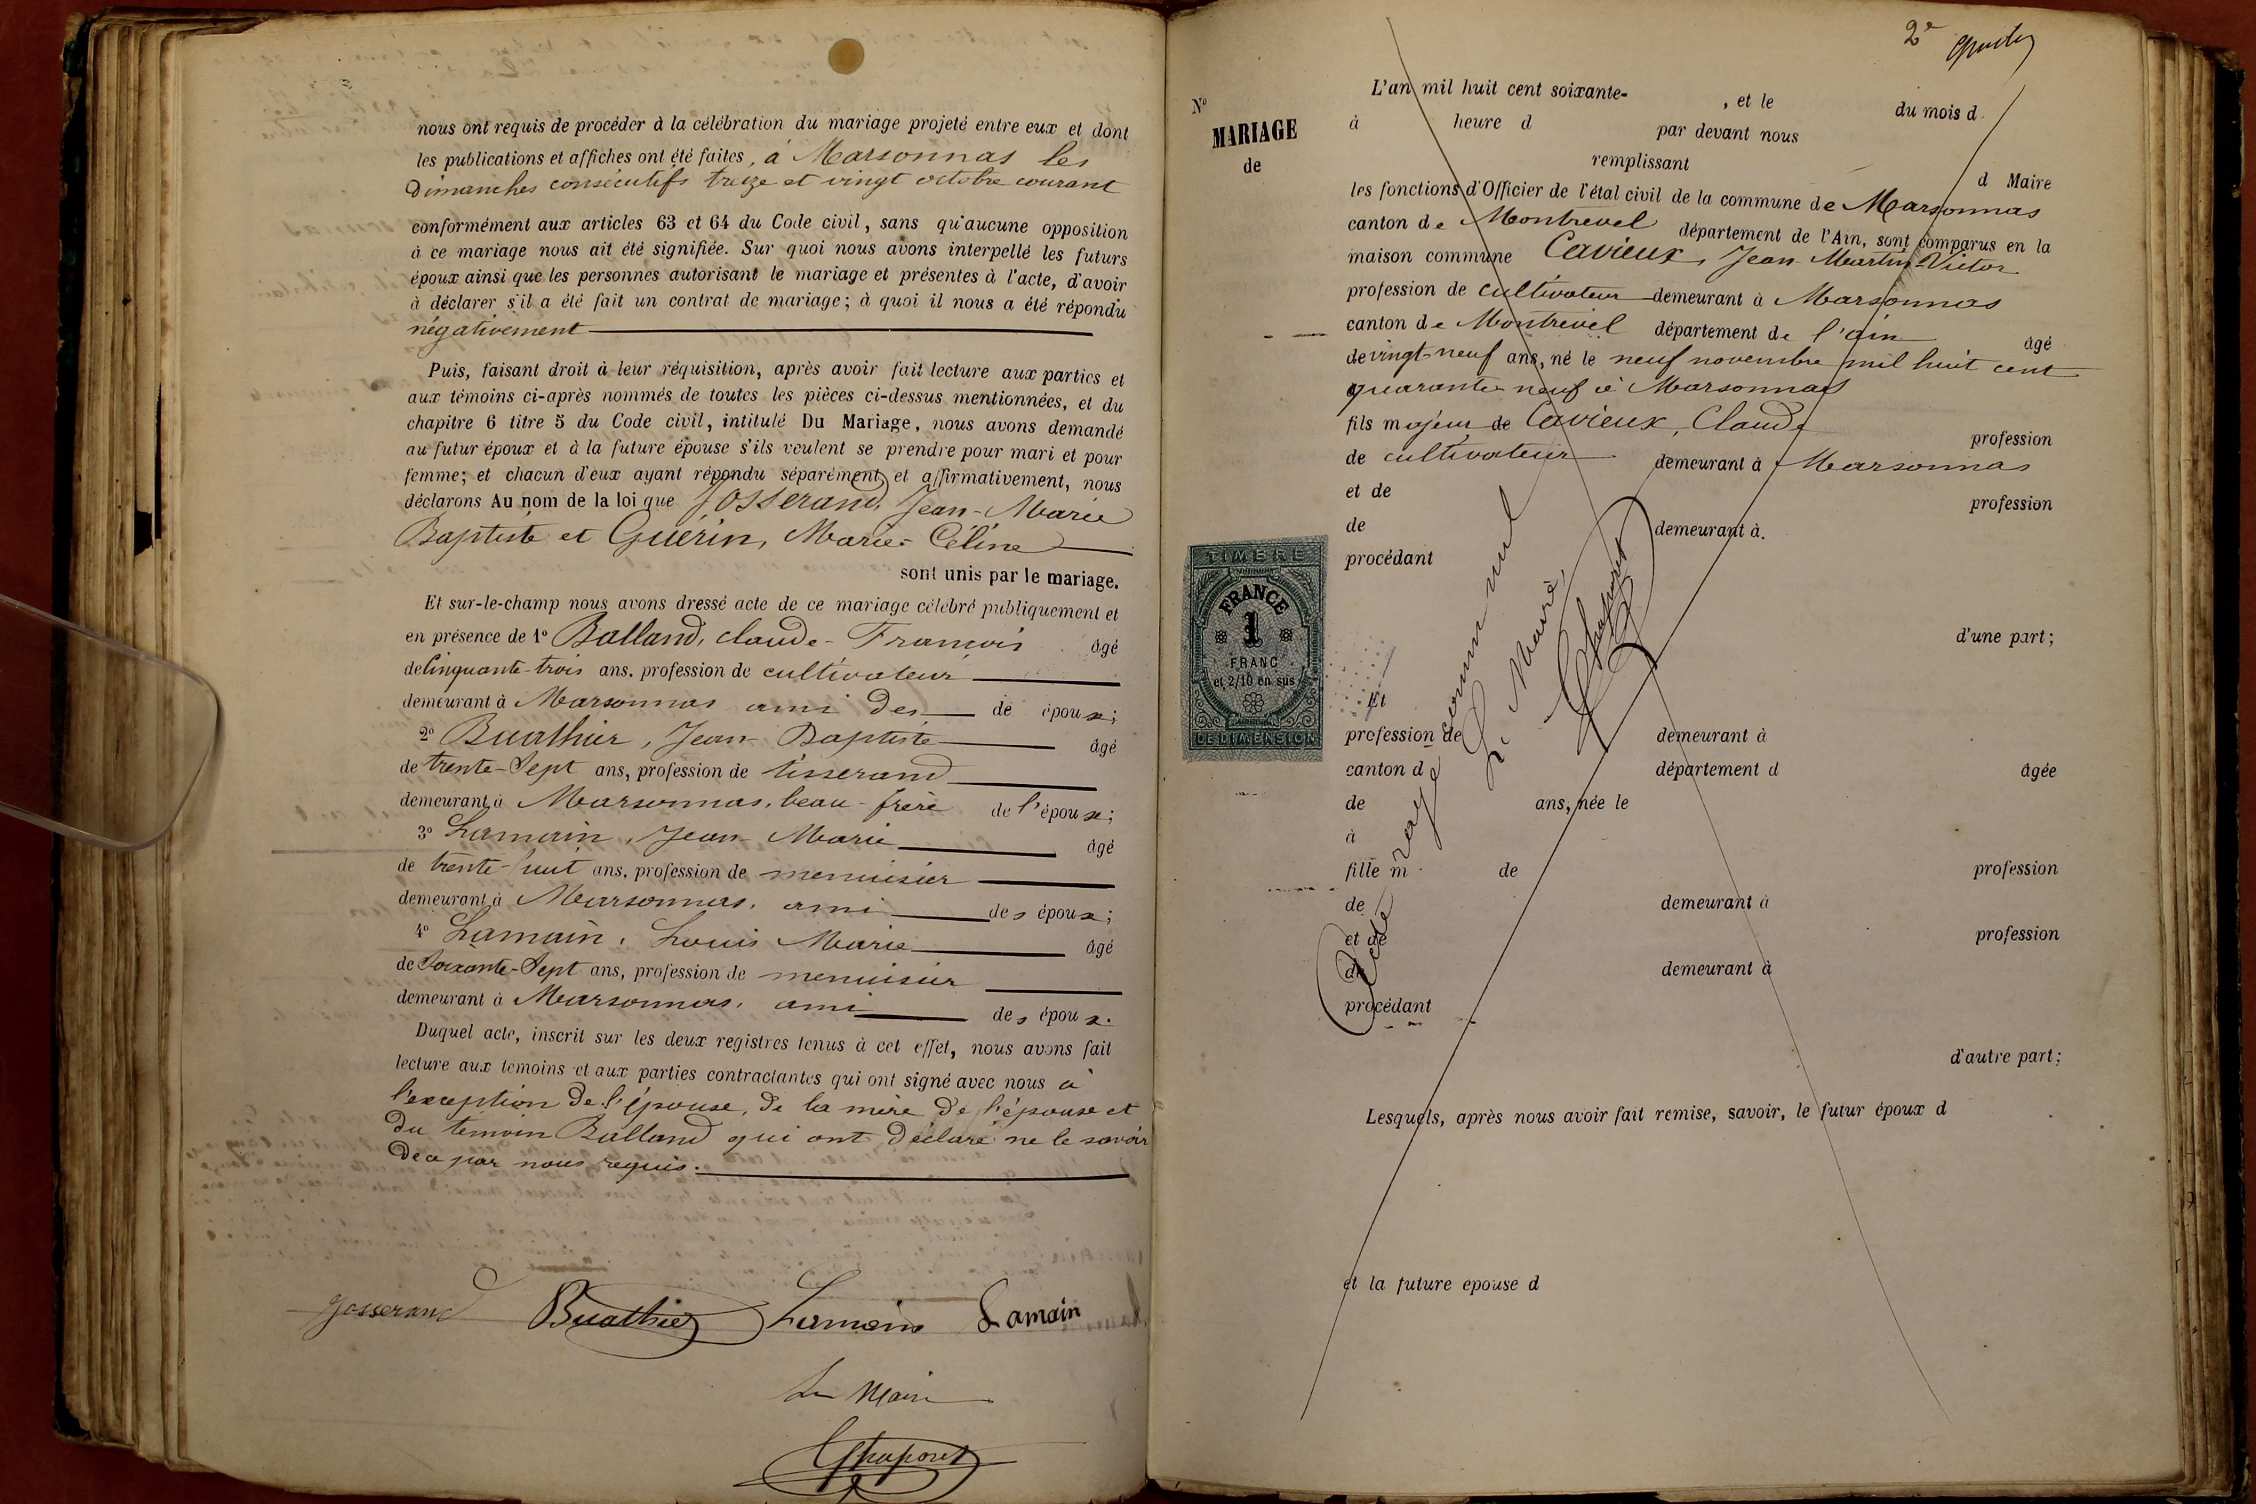 nous ont requis de procéder à la célébration du mariage projeté entre eux et dont
les publications et affiches ont été faites, à Marsonnas les
Dimanches consécutifs treize et vingt octobre courant
conformément aux articles 63 et 64 du Code civil, sans qu'aucune opposition
à ce mariage nous ait été signifiée. Sur quoi nous avons interpellé les futurs
époux ainsi que les personnes autorisant le mariage et présentes à l'acte, d'avoir
à déclarer s'il a été fait un contrat de mariage; à quoi il nous a été répondu
négativement
Puis, faisant droit à leur réquisition, après avoir fait lecture aux parties et
aux témoins ci-après nommés de toutes les pièces ci-dessus mentionnées, et du
chapitre 6 titre 5 du Code civil, intitulé Du Mariage, nous avons demandé
au futur époux et à la future épouse s'ils veulent se prendre pour mari et pour
femme; et chacun d'eux ayant répondu séparément et affirmativement, nous
déclarons Au nom de la loi que Josserand, Jean-Marie
Baptiste et Guérin, Marie-Céline
sont unis par le mariage.
Et sur-le-champ nous avons dressé acte de ce mariage célébré publiquement et
en présence de 1º Balland, claude-François âgé
de Cinquante-trois ans, profession de cultivateur
demeurant à Marsonnas ami des de époux;
2º Buathier, Jean-Baptiste âgé
de trente-Sept ans, profession de tisserand
demeurant à Marsonnas, beau-frère de l'époux;
3º Lamain, Jean-Marie âgé
de trente-huit ans, profession de menuisier
demeurant à Marsonnas, ami des époux;
4º Lamain, Louis Marie âgé
de Soixante-Sept ans, profession de menuisier
demeurant à Marsonnas, ami des époux.
Duquel acte, inscrit sur les deux registres tenus à cet effet, nous avons fait
lecture aux témoins et aux parties contractantes qui ont signé avec nous à
l'exception de l'épouse, de la mère de l'épouse et
du témoin Balland qui ont déclaré ne le savoir
de ce par nous requis.
Josserand Buathier Lamain Lamain
Le Maire
Chaponet
2e
Nº
MARIAGE
de
L'an mil huit cent soixante- , et le du mois d
à heure d par devant nous
remplissant d Maire
les fonctions d'Officier de l'état civil de la commune de Marsonnas
canton de Montrevel département de l'Ain, sont comparus en la
maison commune Cavieux, Jean-Martin-Victor
profession de cultivateur demeurant à Marsonnas
canton de Montrevel département de l'ain âgé
de vingt-neuf ans, né le neuf novembre mil huit cent
quarante neuf à Marsonnas
fils majeur de Cavieux, Claude profession
de cultivateur demeurant à Marsonnas
et de profession
de demeurant à.
procédant
d'une part;
Et
profession de demeurant à
canton d département d âgée
de ans, née le
à
fille m de profession
de demeurant à
et de profession
de demeurant à
procédant
d'autre part;
Lesquels, après nous avoir fait remise, savoir, le futur époux d
et la future epouse d
Acte rayé comme nul
Le Maire,
Chaponet
TIMBRE
FRANCE
1
FRANC
et 2/10 en sus
DE DIMENSION